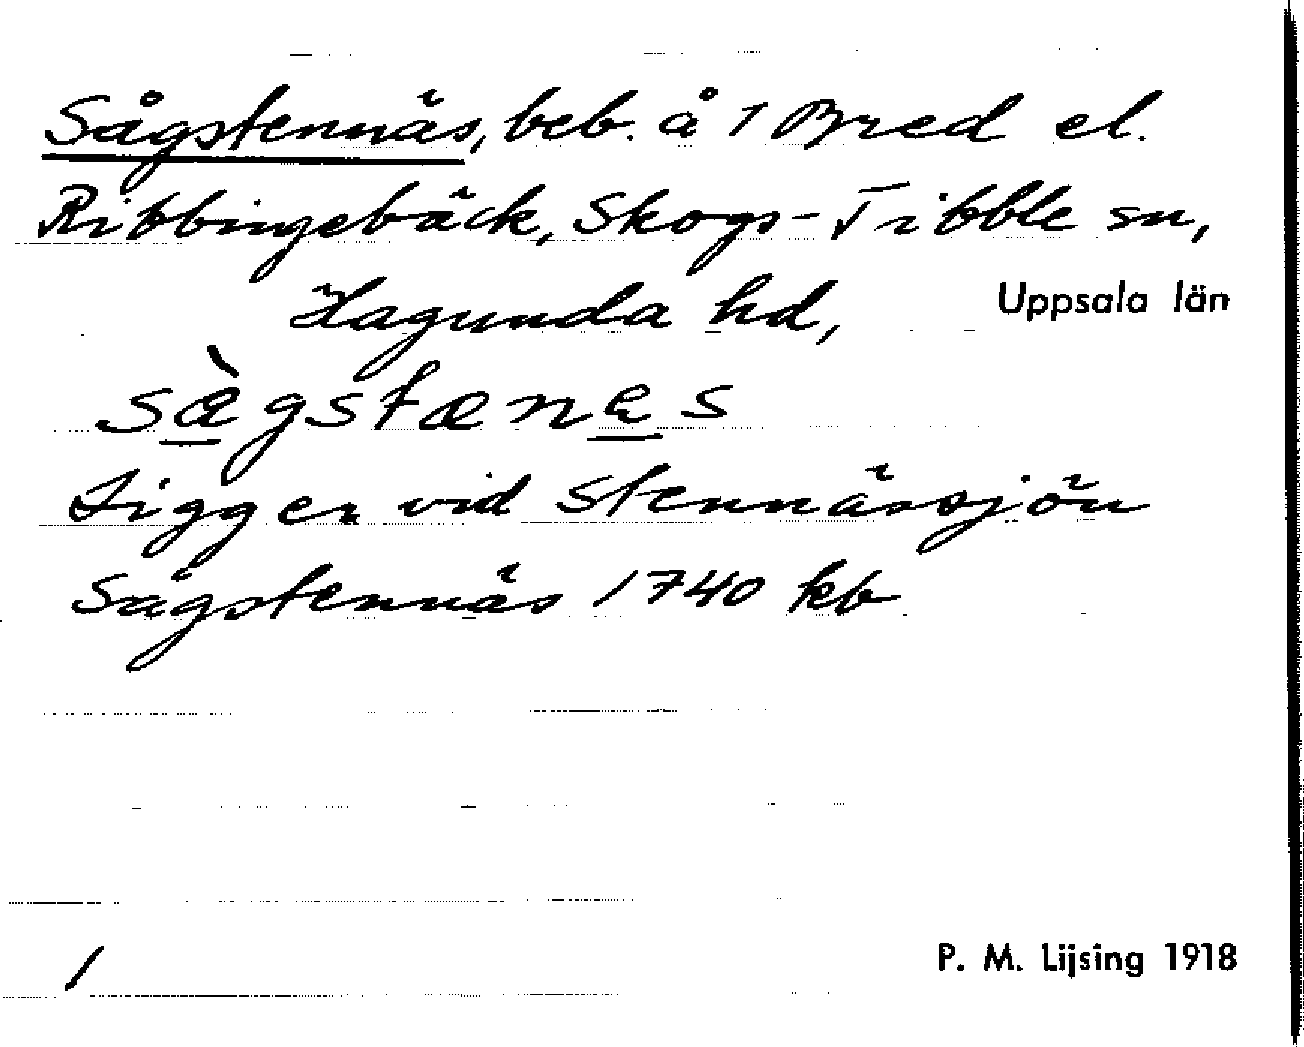 Sågstennäs, beb. å 1 Bred el.
Ribbingebäck, Skogs-Tibble sn,
Hagunda hd, Uppsala län
sæ̀gstænes
Ligger vid Stennässjön
Sågstennäs 1740 kb
1
P. M. Lijsing 1918